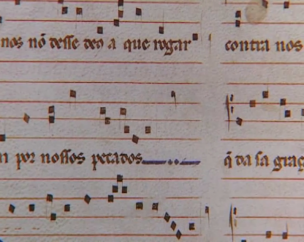 nos nō desse deo a que rogar
por nossos pecados
contra nos
q̄ da sa graç